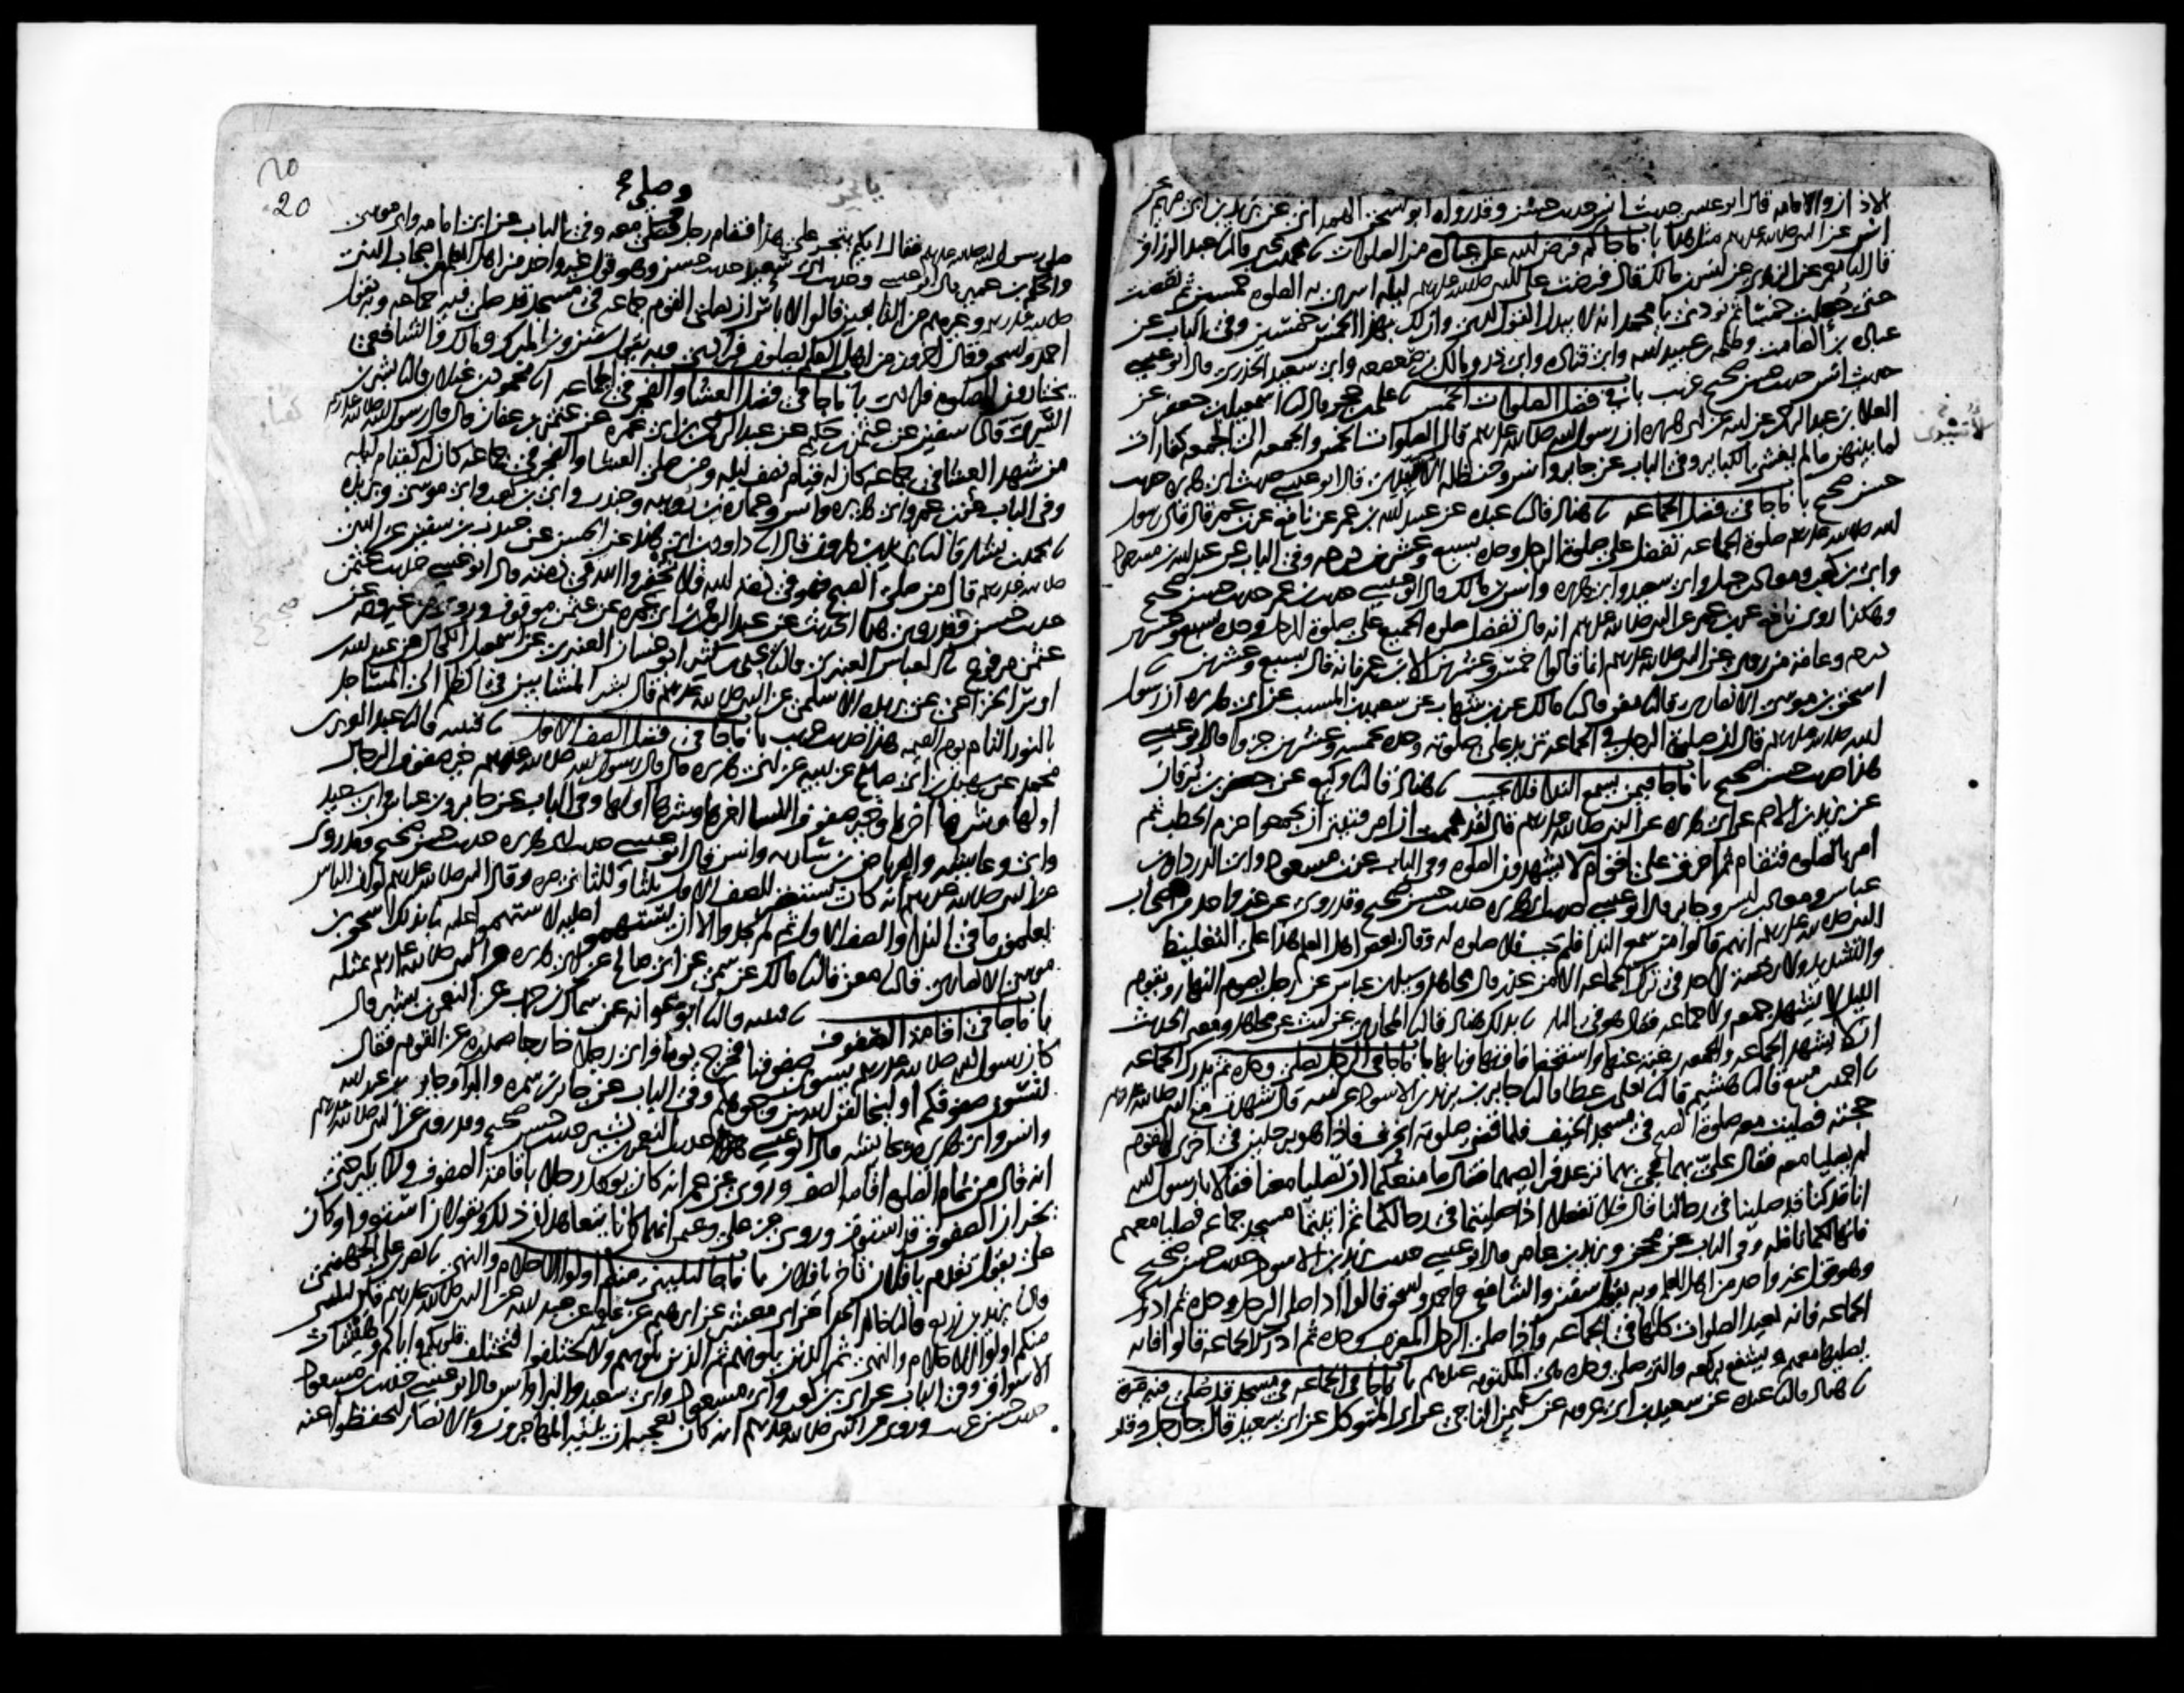 الاذان والاقامه قال ابو عيسى حديث انس حديث حسن وقد رواه ابو اسحق الهمداني عن بريد بن ابي مريم عن
انس عن النبي صلى الله عليه وسلم مثل هذا باب ما جا كم فرض الله على عباده من الصلوات محمد بن يحيى قال نا عبد الرزاق
قال انا معمر عن الزهري عن انس بن مالك قال فرضت على النبي صلى الله عليه وسلم ليله اسري به الصلوه خمسين ثم نقصت
حتى جعلت خمسا ثم نودي يا محمد انه لا يبدل القول لدي وان لك بهذا الخمس خمسين وفي الباب عن
عباده بن الصامت وطلحه بن عبيد الله وابي قتاده وابي ذر ومالك بن صعصعه وابي سعيد الخدري قال ابو عيسى
حديث انس حديث حسن صحيح غريب باب في فضل الصلوات الخمس علي بن حجر قال نا اسمعيل بن جعفر عن
العلا بن عبد الرحمن عن ابيه عن ابي هريره ان رسول الله صلى الله عليه وسلم قال الصلوات الخمس والجمعه الى الجمعه كفارات
لما بينهن ما لم يغش الكباير وفي الباب عن جابر وانس وحنظله الاسيدي قال ابو عيسى حديث ابي هريره حديث
حسن صحيح باب ما جا في فضل الجماعه هناد قال نا عبده عن عبيد الله بن عمر عن نافع عن ابن عمر قال قال رسول
الله صلى الله عليه وسلم صلوة الجماعه تفضل على صلوة الرجل وحده بسبع وعشرين درجه وفي الباب عن عبد الله بن مسعود
وابي بن كعب ومعاذ بن جبل وابي سعيد وابي هريره وانس بن مالك قال ابو عيسى حديث ابن عمر حديث حسن صحيح
وهكذا روى نافع عن ابن عمر عن النبي صلى الله عليه وسلم انه قال تفضل صلوة الجميع على صلوة الرجل وحده بسبع وعشرين
درجه وعامة من روى عن النبي صلى الله عليه وسلم انما قالوا خمس وعشرين الا ابن عمر فانه قال بسبع وعشرين
اسحق بن موسى الانصاري قال نا معن قال نا مالك عن ابن شهاب عن سعيد بن المسيب عن ابي هريره ان رسول
الله صلى الله عليه وسلم قال ان صلوة الرجل في الجماعه تزيد على صلوته وحده بخمسه وعشرين جزوا قال ابو عيسى
هذا حديث حسن صحيح باب ما جا فيمن يسمع الندا فلا يجيب هناد قال نا وكيع عن جعفر بن برقان
عن يزيد بن الاصم عن ابي هريره عن النبي صلى الله عليه وسلم قال لقد هممت ان امر فتيتي ان يجمعوا حزم الحطب ثم
امر بالصلوه فتقام ثم احرق على اقوام لا يشهدون الصلوه وفي الباب عن ابن مسعود وابي الدردا وابن
عباس ومعاذ بن انس وجابر قال ابو عيسى حديث ابي هريره حديث حسن صحيح وقد روي عن غير واحد من اصحاب
النبي صلى الله عليه وسلم انهم قالوا من سمع الندا فلم يجب فلا صلوه له وقال بعض اهل العلم هذا على التغليظ
والتشديد ولا رخصة لاحد في ترك الجماعه الا من عذر قال مجاهد وسيل ابن عباس عن رجل يصوم النهار ويقوم
الليل لا يشهد جمعه ولا جماعه فقال هو في النار بذلك هناد قال نا المحاربي عن ليث عن مجاهد ومعنى الحديث
ان لا يشهد الجماعه والجمعه رغبة عنها واستخفافا بحقها وتهاونا بها باب ما جا في الرجل يصلي وحده ثم يدرك الجماعه
احمد بن منيع قال نا هشيم قال نا يعلى بن عطا قال نا جابر بن يزيد بن الاسود عن ابيه قال شهدت مع النبي صلى الله عليه وسلم
حجته فصليت معه صلوة الصبح في مسجد الخيف فلما قضى صلوته انحرف فاذا هو برجلين في اخرى القوم
لم يصليا معه فقال علي بهما فجيء بهما ترعد فرايصهما فقال ما منعكما ان تصليا معنا فقالا يا رسول الله
انا قد كنا قد صلينا في رحالنا قال فلا تفعلا اذا صليتما في رحالكما ثم اتيتما مسجد جماعه فصليا معهم
فانها لكما نافله وفي الباب عن محجن ويزيد بن عامر قال ابو عيسى حديث يزيد بن الاسود حديث حسن صحيح
وهو قول غير واحد من اهل العلم وبه يقول سفين والشافعي واحمد واسحق قالوا اذا صلى الرجل وحده ثم ادرك
الجماعه فانه يعيد الصلوات كلها في الجماعه واذا صلى الرجل المغرب وحده ثم ادرك الجماعه قالوا فانه
يصليها معهم ويشفع بركعه والتي صلى وحده هي المكتوبه عندهم باب ما جا في الجماعه في مسجد قد صلي فيه مرة
هناد قال نا عبده عن سعيد بن ابي عروبه عن سليمن الناجي عن ابي المتوكل عن ابي سعيد قال جا رجل وقد
20
وصلى
صلى رسول الله صلى الله عليه وسلم فقال ايكم يتجر على هذا فقام رجل فصلى معه وفي الباب عن ابي امامه وابي موسى
والحكم بن عمير قال ابو عيسى وحديث ابي سعيد حديث حسن وهو قول غير واحد من اهل العلم من اصحاب النبي
صلى الله عليه وسلم وغيرهم من التابعين قالوا لا باس ان يصلي القوم جماعه في مسجد قد صلي فيه جماعه وبه يقول
احمد واسحق وقال اخرون من اهل العلم يصلون فرادى وبه يقول سفين وابن المبارك ومالك والشافعي
يختارون الصلوه فرادى باب ما جا في فضل العشا والفجر في الجماعه محمود بن غيلان قال نا بشر بن
السري قال نا سفين عن عثمن بن حكيم عن عبد الرحمن بن ابي عمره عن عثمن بن عفان قال قال رسول الله صلى الله عليه وسلم
من شهد العشا في جماعه كان له قيام نصف ليله ومن صلى العشا والفجر في جماعه كان له كقيام ليله
وفي الباب عن ابن عمر وابي هريره وانس وعماره بن رويبه وجندب وابي بن كعب وابي موسى وبريده
محمد بن بشار قال نا يزيد بن هارون قال انا داود بن ابي هند عن الحسن عن جندب بن سفين عن النبي
صلى الله عليه وسلم قال من صلى الصبح فهو في ذمة الله فلا تخفروا الله في ذمته قال ابو عيسى حديث عثمن
حديث حسن وقد روي هذا الحديث عن عبد الرحمن بن ابي عمره عن عثمن موقوف وروي من غير وجه عن
عثمن مرفوع العباس العنبري قال نا يحيى بن كثير ابو غسان العنبري عن اسمعيل الكحال عن عبد الله بن
اوس الخزاعي عن بريده الاسلمي عن النبي صلى الله عليه وسلم قال بشر المشايين في الظلم الى المساجد
بالنور التام يوم القيمه هذا حديث غريب باب ما جا في فضل الصف الاول قتيبه قال نا عبد العزيز بن
محمد عن سهيل بن ابي صالح عن ابيه عن ابي هريره قال قال رسول الله صلى الله عليه وسلم خير صفوف الرجال
اولها وشرها اخرها وخير صفوف النسا اخرها وشرها اولها وفي الباب عن جابر وابن عباس وابي سعيد
وابي وعايشه والعرباض بن ساريه وانس قال ابو عيسى حديث ابي هريره حديث حسن صحيح وقد روي
عن النبي صلى الله عليه وسلم انه كان يستغفر للصف الاول ثلثا وللثاني مره وقال النبي صلى الله عليه وسلم لو ان الناس
يعلمون ما في الندا والصف الاول ثم لم يجدوا الا ان يستهموا عليه لاستهموا عليه نا بذلك اسحق بن
موسى الانصاري قال نا معن قال نا مالك عن سمي عن ابي صالح عن ابي هريره عن النبي صلى الله عليه وسلم بمثله
باب ما جا في اقامة الصفوف قتيبه قال نا ابو عوانه عن سماك بن حرب عن النعمن بن بشير قال
كان رسول الله صلى الله عليه وسلم يسوي صفوفنا فخرج يوما فراى رجل خارجا صدره عن القوم فقال
لتسون صفوفكم او ليخالفن الله بين وجوهكم وفي الباب عن جابر بن سمره والبرا وجابر بن عبد الله
وانس وابي هريره وعايشه قال ابو عيسى حديث النعمن بن بشير حديث حسن صحيح وقد روي عن النبي صلى الله عليه وسلم
انه قال من تمام الصلوه اقامه الصف وروي عن عمر انه كان يوكل رجلا باقامة الصفوف ولا يكبر حتى
يخبر ان الصفوف قد استوت وروي عن علي وعثمن انهما كانا يتعاهدان ذلك ويقولان استووا وكان
علي يقول تقدم يا فلان تاخر يا فلان باب ما جا ليليني منكم اولوا الاحلام والنهى نصر بن علي الجهضمي
قال نا يزيد بن زريع قال نا خالد الحذا عن ابي معشر عن ابرهيم عن علقمه عن عبد الله عن النبي صلى الله عليه وسلم قال ليليني
منكم اولوا الاحلام والنهى ثم الذين يلونهم ثم الذين يلونهم ولا تختلفوا فتختلف قلوبكم واياكم وهيشات
الاسواق وفي الباب عن ابي بن كعب وابي مسعود وابي سعيد والبرا وانس قال ابو عيسى حديث ابن مسعود
حديث حسن غريب وروي عن النبي صلى الله عليه وسلم انه كان يعجبه ان يليه المهاجرون والانصار ليحفظوا عنه